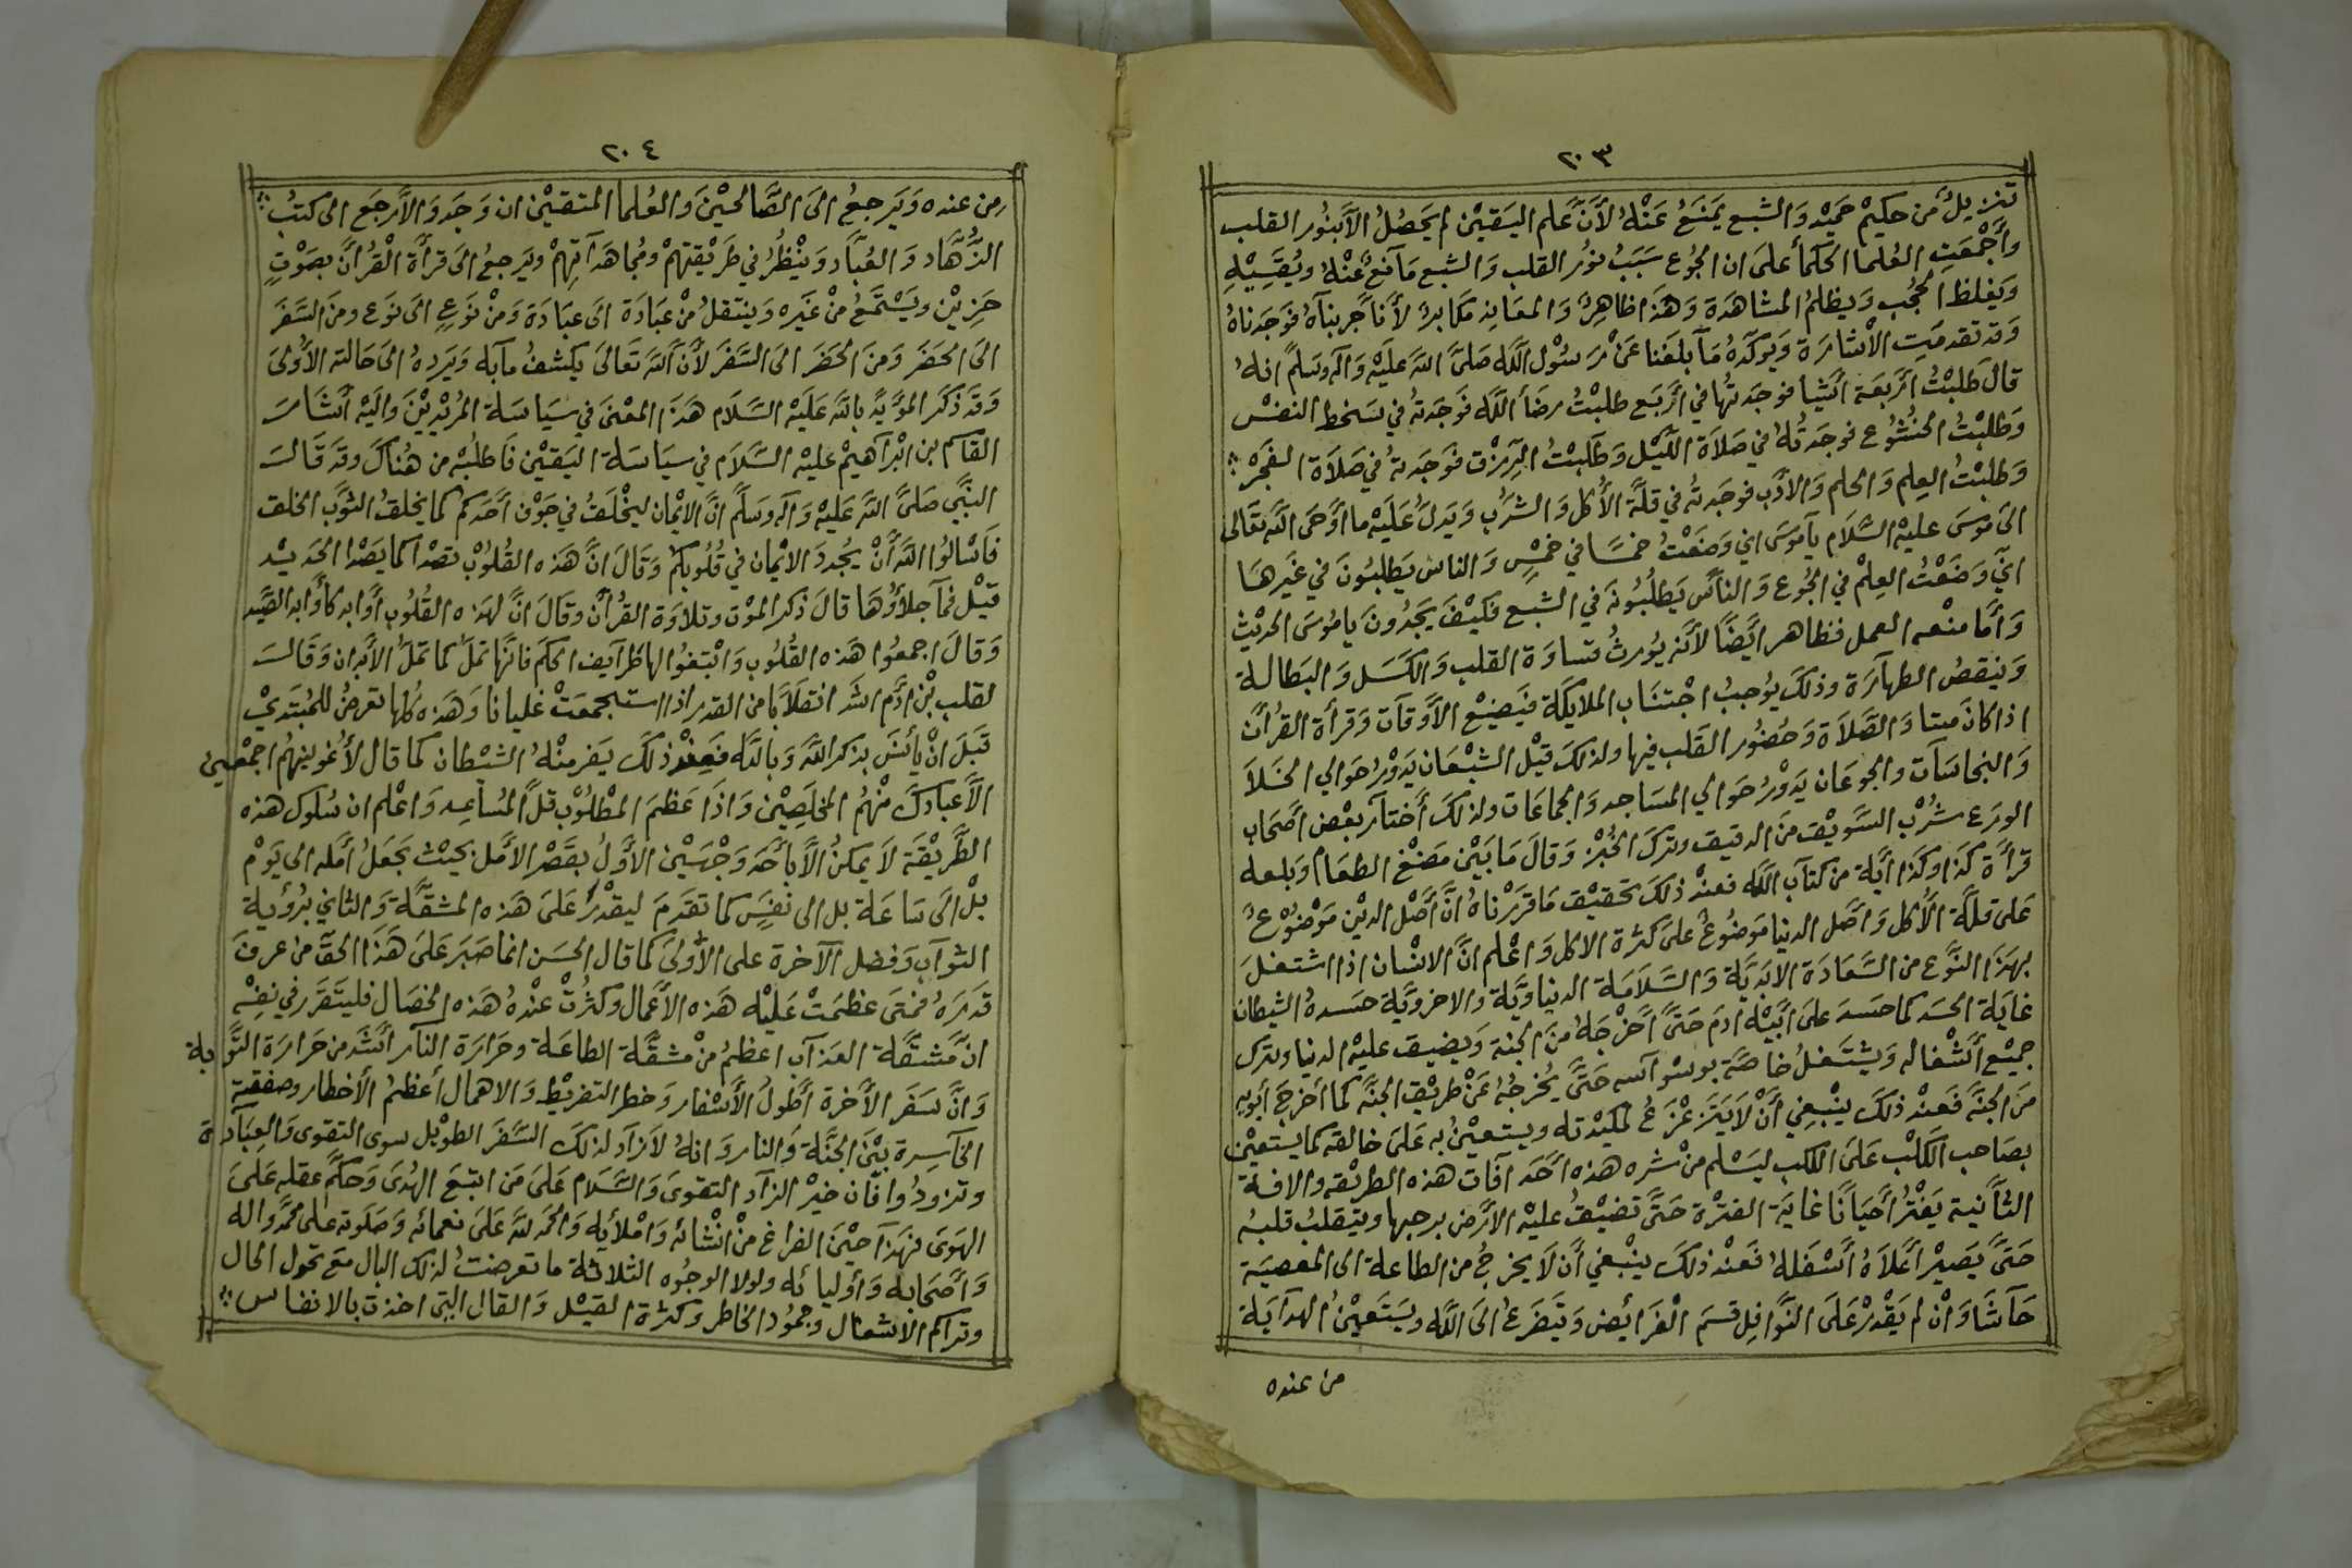 ٢٠٣
تنزيلٌ من حكيمْ حميْد وَالشبع يَمنَعُ عَنْهُ لأنَّ علم اليَقيْن لم يَحصُلُ الاَّ بنُور القلب
وأَجْمَعَتِ العُلما الحكمأ علىَ ان الجُوع سَبَبُ نوُر القلب وَالشبع مَآنعٌ عَنْهُ ويُقسِيْهِ
وَيَغلظ الحجُب وَيظلمُ المشاهَدَة وَهَذَا ظاهِرٌ وَالمعَاند مكَابرٌ لأنآ جَربنآهُ فوَجَدناهُ
وَقد تقدمَتِ الاشارَة وَيؤكدهُ مَآ بلغَنا عَنْ رَسُوْل اللَّه صَلىَّ اللهَ عَلَيْه وَآله وَسَلمَّ انهُ
قال طَلبْتُ أرَّبعَة أَشيا فوجَدتُها في أرَّبَع طلبْتُ رضَأ اللَّه فَوجَدتهُ في سَخط النفسْ
وَطلبْتُ الخشُوع فوجَدتُهُ في صَلاَة اللَيْل وَطَلبْتُ الرِزْق فوَجَدتهُ في صَلاَة الفَجرْ
وَطلبْتُ العِلم وَالحلم وَالأدَب فوجَدتهُ في قلَّة الأُكل وَالشرُب وَيَدلَ عَلَيْه ما أَوَّحَى اللهَ تعَالى
الىَ موُسَى عليْه السَّلَام يآموُسَى اني وَضَعْتُ خمسًا في خمسٍْ وَالناس يَطلبُونَ في غيرهَا
انيَّ وَضَعْتُ العِلمْ في الجُوع وَالنأسَّ يَطلُبُونهَ في الشبع فكيْفَ يَجدُونَ ياموُسَى الحديْث
وَأمَّا منْعه العمل فظاهر ايَضًا لأنه يُورثُ قساوَة القلب وَالكَسَل وَالبَطالة
وَنيقصُ الطهآرَة وذلكَ يوُجبُ اجْتنَاب الملايكَة فَيَضيْع الأَوقآت وَقرأَة القرُأنَ
اذا كانَ ميتا وَالصَّلَاة وَحُضوُر القلب فيها ولذلكَ قيْل الشبْعَان يَدوْرُ حَوالي الخَلاَ
وَالنجاسَآت والجوعَان يَدوْرُ حَوالي المسَاجد وَالجمَاعَات ولذلكَ أَختآر بعْض أصَّحَاب
الورَع شرُبْ السَّويْق منَ الدقيق وترَك الخُبزْ وَقالَ مَا بَيْن مَضغْ الطعَام وَبلعه
قرأَة كذَا وكَذا أَيَّة من كتآب اللَّه فعنْد ذلكَ تحَقيْق مَا قَررْناهُ انَّ أصَّل الديْن مَوْضوْعٌ
عَلى قلَّة الأُكل وَاصَّل الدنيا مَوضُوعٌ علىَ كثرة الاكل وَاعْلم انَّ الانسْان اذا اشتغلَ
بهذَا النَّوع من السَّعَادَة الابَديَّة وَالسَّلَامَة الدنياويَّة والاخرويَّة حسَدهُ الشيطان
غايَة الحسَد كما حسَدَ علىَ أبَيْه ادمَ حَتىَّ أَخْرْجَهُ منَ الجنة وَيضيق عليْه الدنيا وترَك
جميْع أشْغاله وَيشتَغلُ خاصَّة بوسْواسه حَتىَّ يُخرجُهُ عَنْ طريْق الجنَّة كما أَخرجَ أبويه
منَ الجنَّة فَعنْد ذلكَ يَنْبغِي أنَّ لاَ يَتزَعْزَعُ لمكيْدته ويستعيْنُ به عَلىَ خالقه كمايستعيْن
بصَاحب الكَلْب عَلىَ الكلب ليَسْلم منْ شره هذه أحَد آفات هذه الطريْقه والافة
الثآنية يَفتْرُ أحَيَانًا غايَة الفترْة حَتىَّ تضيْقُ عليْه الأَرض برحبها ويتيقلبُ قلبهُ
حَتىَّ يَصَيْر أعَلاَهُ أَسْفَلهُ فَعنْد ذلكَ ينبْغي أنَ لاَ يخرجُ من الطاعة الى المعصيَة
حَآشَا وَانْ لم يَقْدرْ عَلَى النَّوافِل قسَمَ الْفرَايض وَتَيَضرَعُ الىَ اللَّه ويَستَعيْنُ الهدآيَة
من عنده
٢٠٤
من عنده وَيَرجعُ الىَ الصَّالحيْنَ وَالعُلما المتقيْن ان وَجَد وَالاَّ رجَع الى كتبُ
الزُهَّاد وَالعُبَّاد وَينْظُرُ في طَرْيقتهمْ ومُجاهَدآتِهمْ ويَرجعُ الىَ قرأَة الْقرُانَّ بصَوْتٍ
حَزيْن ويَسْتَمعُ منْ غيَره وَينتقلُ منْ عبَادَة الىَ عبَادَة وَمنْ نوَعٍ الىَ نوَع ومنَ السَّفَرَ
الىَ الحضَر وَمنَ الحَضَر الىَ السَّفرَ لأنَ اللهَ تَعَالىَ يكشفُ مآبه وَيَردهُ الىَ حَالته الأُولىَ
وَقدَ ذكَرَ المؤيَّد باللهَ عَلَيْه السَّلَام هَذَا المعْنىَ في سيَاسَة المُريْديْنَ وَاليْه أَشَارَ
القاسم ابن ابْرآهيمْ عليْه السَّلَام في سيَاسَة اليَقيْن فَاطلبْه من هُنَاكَ وقدَ قَالَ
النبَّي صَلىَّ اللهَ عَليْه وَآله وَسَلمَّ انَّ الايْمان ليَخْلَقُ في جَوْف أحَّدكم كما يخلقُ الثوَّب الخلق
فَاسْألُوا اللهَ أَنْ يُجددَ الايْمان في قُلُوبكمُ وَقَالَ انَّ هَذه القُلُوْبْ تصَدْا كما يَصَدْا الحَديْد
قيْل فمآ جلاَؤُهَا قالَ ذكر الموْت وتلاَوَة القرُأنَ وقَالَ انَّ لهَذه القُلُوب أوَابد كأوَّابد الصَيَّد
وَقالَ اجمعُوا هَذه القُلُوب وَابْتغوُا لها ظَرآيف الحكَم فانهَّا تملَ كما تملَّ الأَبَدان وَقالَ
لقلب بنْ أدَم اشَد انقلاَبًا من القدر اذا استجمعَتْ غليانا وَهَذه كُلها تعَرضُ للمُبتَديْ
قبَلَ انْ يأنسَ بذكر اللهَ وَباللَّه فَعِندْ ذلكَ يَفر منْهُ الشيْطان كما قال لأُغَوينهُم اجمْعين
الاَّ عبَادَكَ منْهُمُ المخلَصِيْن وَاذَا عَظمَ المطْلُوْب قلَّ المُسَاعِد وَاعْلم ان سُلوك هذه
الطَّريْقَة لاَ يمكنُ الاَّ بأحَد وَجْهَيْن الأَوَّلُ بقَصْر الأَمل بحيْث يَجعَلُ أَمَله الى يَوْم
بْل الىَ سَاعَة بل الى نفَسٍ كما تقدَمَ ليقْدرُ عَلىَ هَذه المشقَّة وَالثاني برُؤيَة
الثوآب وَفضَل الآخرة على الأَوُلىَ كما قال الحسَن انما صَبرَ عَلىَ هَذَا الحقَّ من عرفَ
قدَرَهُ فمتىَ عَظمَتْ عَليْه هَذه الأَعَّمال وكثرُتْ عنْدهُ هَذه الخصَال فليتقَرَر في نفسْه
انَّ مَشقَّة العَذآب اعظمُ منْ مشقَّة الطاعَة وحَرَارَة النآر أشَّد من حَرارَة التَّوبة
وَانَّ سَفَر الأَخَّرة أطَوَلُ الأَسْفار وَخطر التفريْط وَالاهمال أعظمُ الأَخطار وصفقة
الخآسِرة بيَنْ الجنَّة وَالنار وَانهُ لاَزاَد لذلكَ السَّفَر الطوْيل سوى التقوى وَالعبَآدة
وتزودُوا فان خيْر الزآد التقوىَ وَالسَّلَام عَلىَ مَن اتبَعَ الهُدىَ وَحكَّم عقله عَلىَ
الهَوىَ فهَذآ حيْنَ الفرَاغ منْ انْشائه وَامْلأيه وَالحمَد للهَ عَلىَ نعمائه وَصَلَوته على محمَّد واله
وَأصَّحَابه وَأوليائه ولولا الوجُوه الثلاثة ما تعرضتُ لذلك البال معَ تحَول الحال
وتراكم الاشغال وجمُوُد الخاطر وكثرُة القيْل وَالقال التيِ اخذت بالانفاس